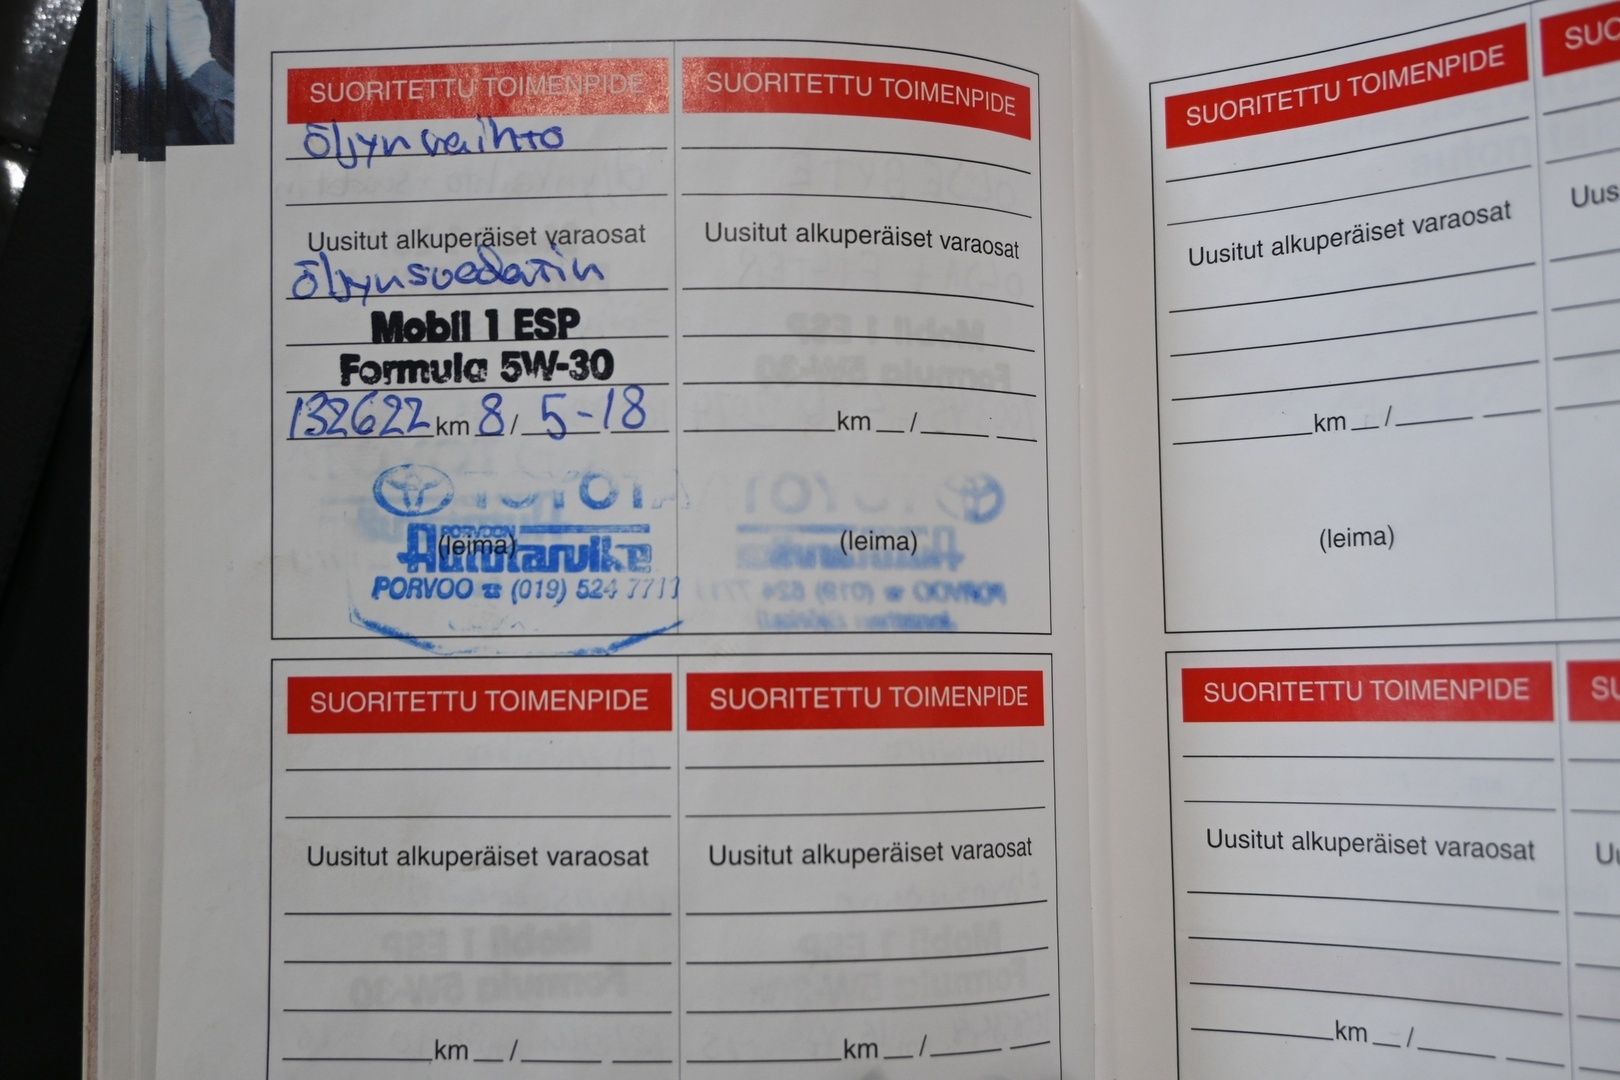 SUORITETTU TOIMENPIDE
öljynvaihto
Uusitut alkuperäiset varaosat
öljynsuodatin
Mobil 1 ESP
Formula 5W-30
132622 km 8 / 5-18
TOYOTA
PORVOON
Autotarvike
(leima)
PORVOO ☎ (019) 524 7711
SUORITETTU TOIMENPIDE
Uusitut alkuperäiset varaosat
km /
(leima)
SUORITETTU TOIMENPIDE
Uusitut alkuperäiset varaosat
km /
(leima)
SUO
Uus
SUORITETTU TOIMENPIDE
Uusitut alkuperäiset varaosat
km /
SUORITETTU TOIMENPIDE
Uusitut alkuperäiset varaosat
km /
SUORITETTU TOIMENPIDE
Uusitut alkuperäiset varaosat
km /
SU